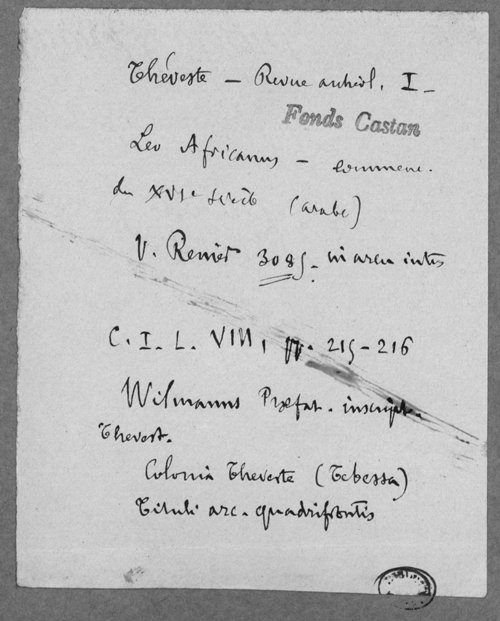 Théveste — Revue archéol. I —
Fonds Castan
Leo Africanus — commenc.
du XVIe siècle (arabe)
V. Renier 3085. in arcu intus
C. I. L. VIII, pp. 215-216
Wilmanns Præfat. inscript.
Thevest.
Colonia Theveste (Tebessa)
Tituli arc. quadrifrontis